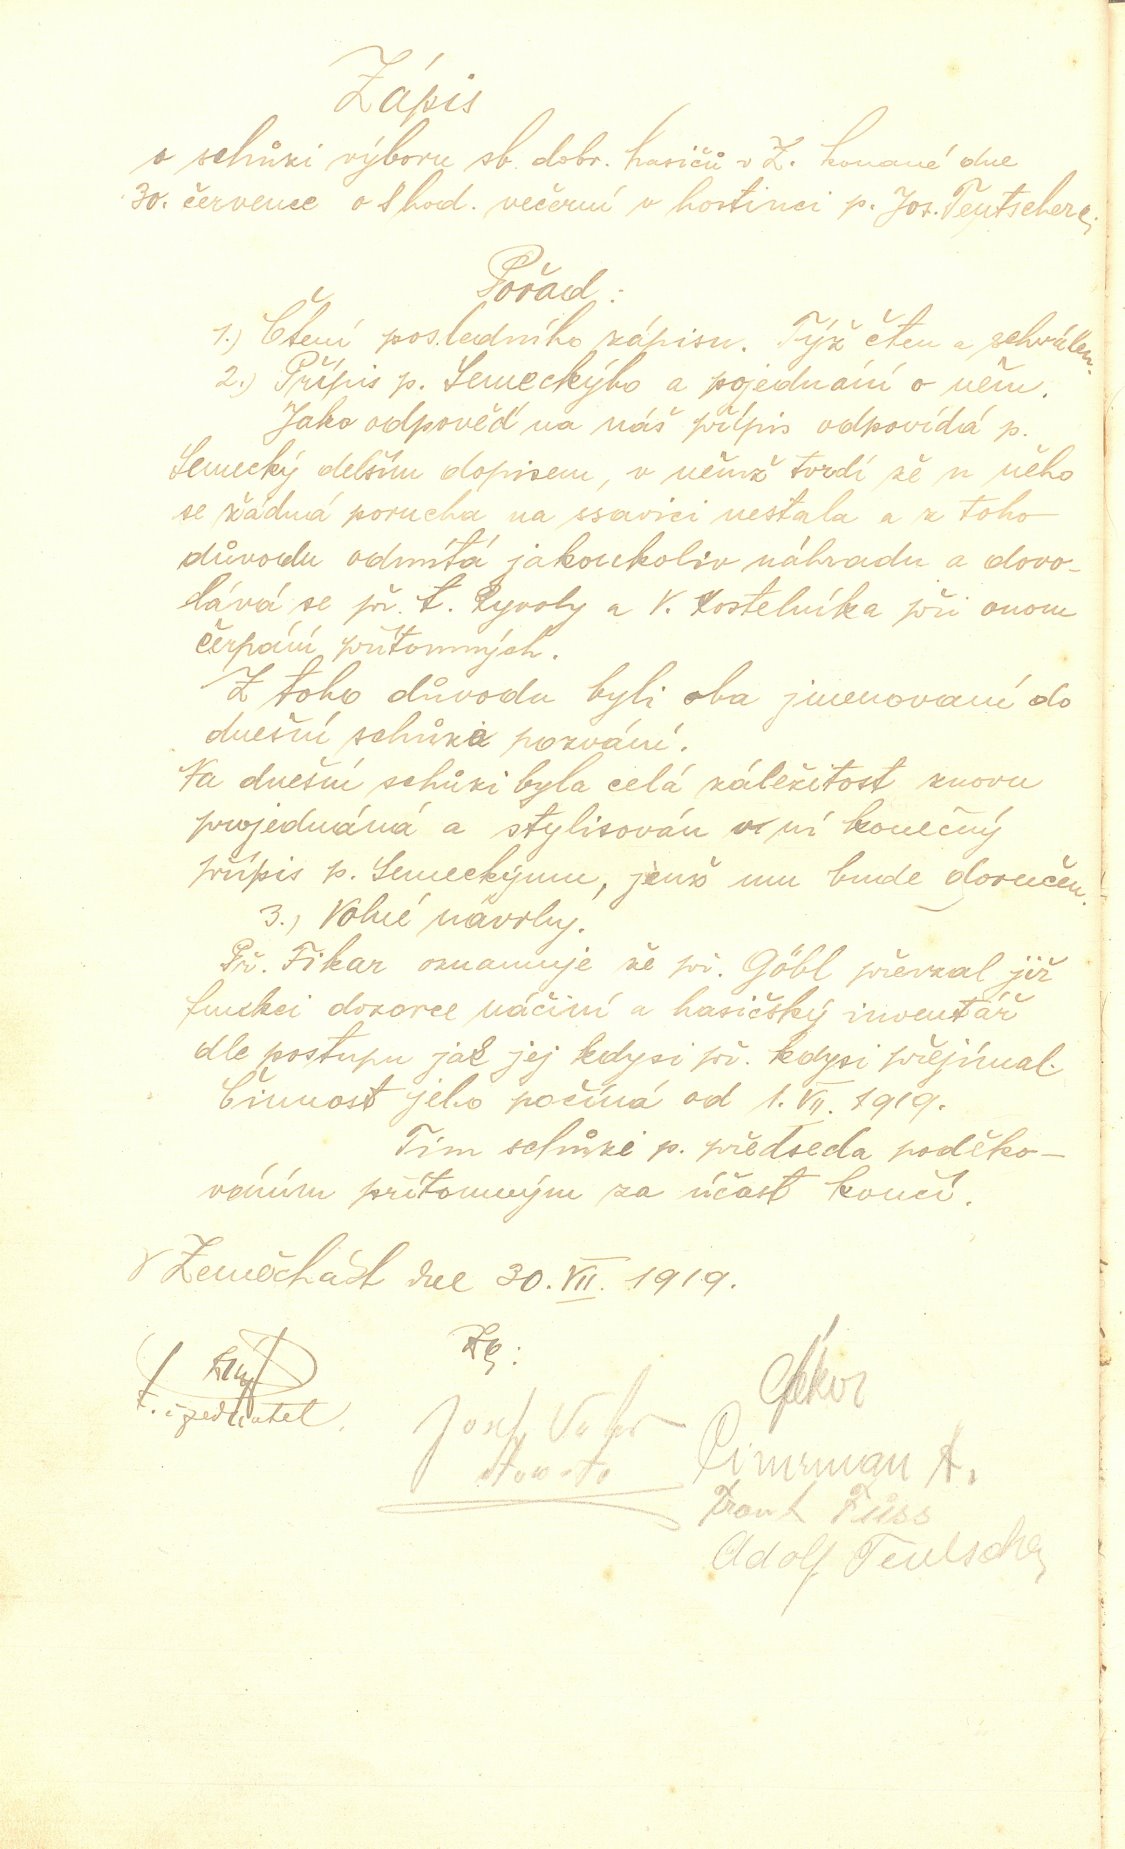 Zápis
o schůzi výboru sb. dobr. hasičů v Z. konané dne
30. července o 8 hod. večerní v hostinci p. Jos. Teutschera
Pořad:
1.) Čtení posledního zápisu. Týž čten a schválen.
2.) Přípis p. Semeckýho a pojednání o něm.
Jako odpověď na náš přípis odpovídá p.
Semecký delším dopisem, v němž tvrdí že u něho
se žádná porucha na ssavici nestala a z toho
důvodu odmítá jakoukoliv náhradu a dovo-
lává se př. t. Ryvoly a V. Kostelníka při onom
čerpání přítomných.
Z toho důvodu byli oba jmenovaní do
dnešní schůze pozváni.
Na dnešní schůzi byla celá záležitost znovu
projednáná a stylisován v ní konečný
přípis p. Semeckýmu, jenž mu bude doručen.
3.) Volné návrhy.
Př. Fikar oznamuje že př. Göbl převzal již
funkci dozorce náčiní a hasičský inventář
dle postupu jak jej kdysi př. kdysi přejímal.
Činnost jeho počíná od 1. VII. 1919.
Tím schůzi p. předseda poděko-
váním přítomným za účast končí.
V Zeměchách dne 30. VII. 1919.
t. č. jednatel.
Josef
starosta
Cimrman A.
Frant. Füss
Adolf Teutscher